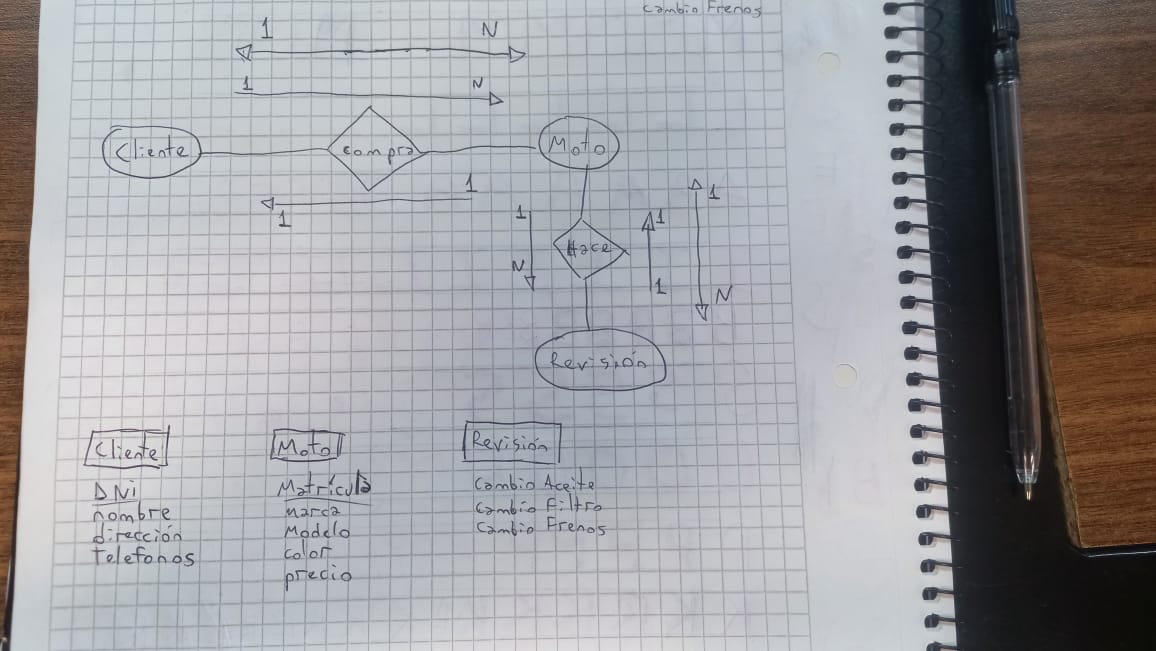 Cambio Frenos
1 N
1 N
Cliente compra Moto
1
1
1
N
Hace
1
1
1
N
Revisión
Cliente
DNi
nombre
dirección
Telefonos
Moto
Matrícula
Marca
Modelo
color
precio
Revisión
Cambio Aceite
Cambio Filtro
Cambio Frenos